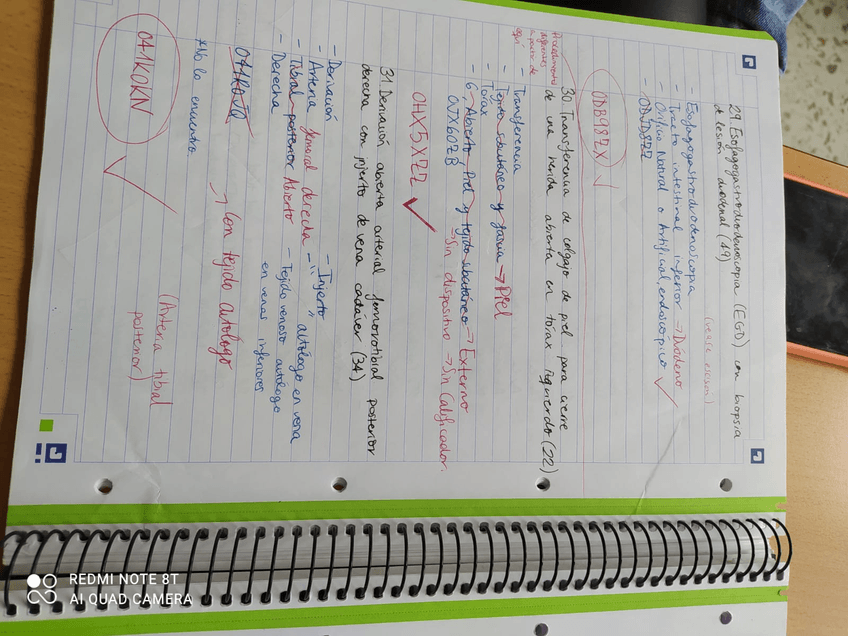 29. Esofagogastroduodenoscopia (EGD) con biopsia
de lesión duodenal (49)
(véase escisión)
- Esofagogastroduodenoscopia
- Tracto intestinal inferior → Duodeno
- Orificio Natural o Artificial, endoscópico ✓
- 0DJD8ZZ
0DB98ZX ✓
30. Transferencia de colgajo de piel para cierre
de una herida abierta en tórax izquierdo (22)
Procedimientos
diferentes
a partir de
aquí
- Transferencia
- Tejido subcutáneo y fascia → Piel
- Tórax
- 6 - Abierto Piel y tejido subcutáneo → Externo
0JX60ZB → Sin dispositivo → Sin Calificador.
0HX5XZZ ✓
31. Derivación abierta arterial femorotibial posterior
derecha con injerto de vena cadáver (34)
- Derivación
- Arteria femoral derecha
- Tibial posterior Abierto
- Derecha
- Injerto
- " " autólogo en vena
- Tejido venoso autólogo
en venas inferiores
041K0JQ → Con tejido autólogo
*No lo encuentro
041K0KN ✓
(Arteria tibial
posterior)
REDMI NOTE 8T
AI QUAD CAMERA